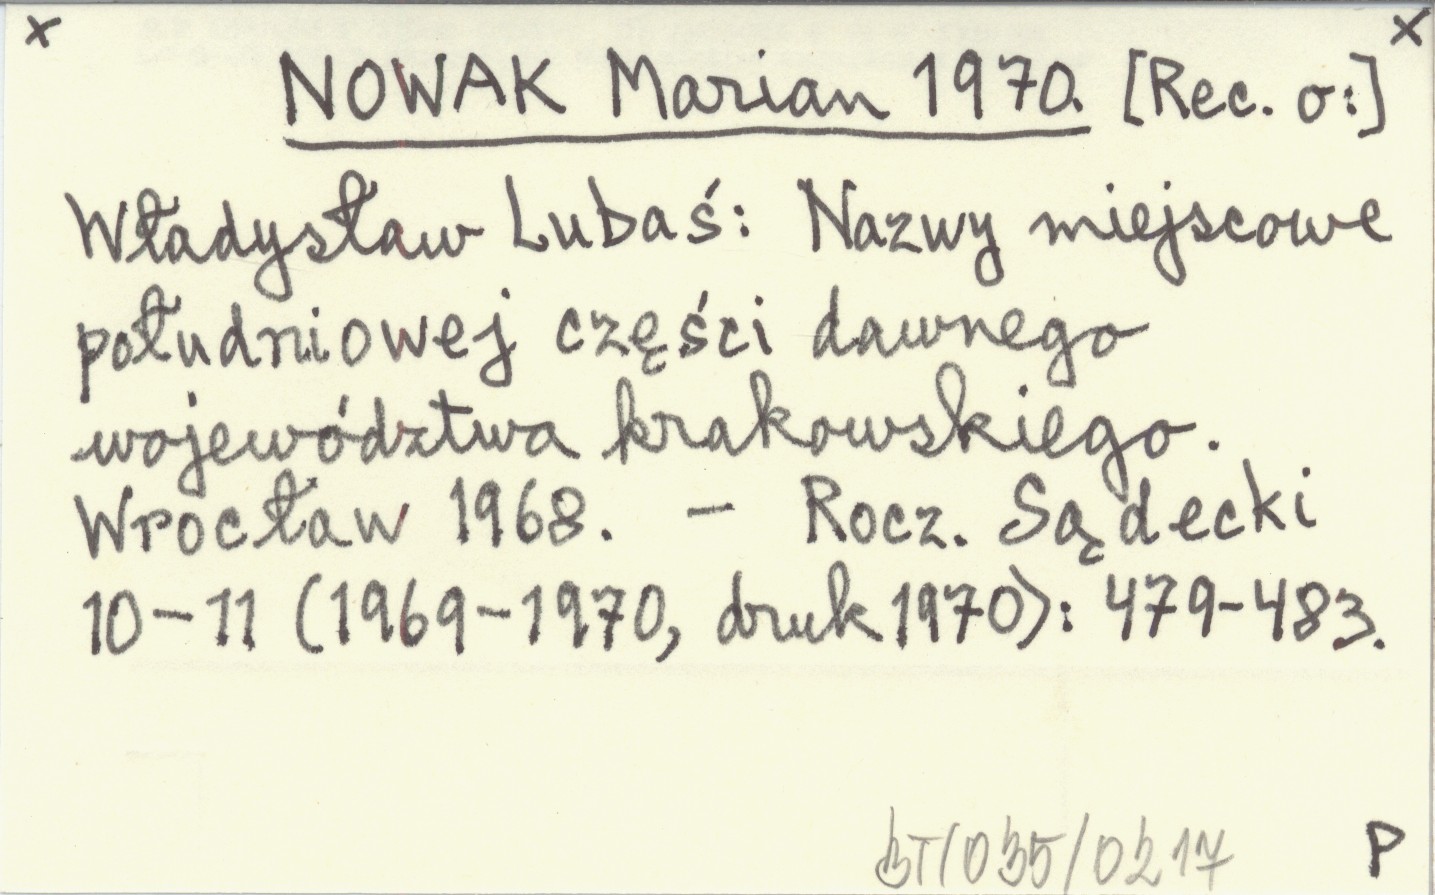 x x
NOWAK Marian 1970. [Rec. o:]
Władysław Lubaś: Nazwy miejscowe
południowej części dawnego
województwa krakowskiego.
Wrocław 1968. – Rocz. Sądecki
10–11 (1969–1970, druk 1970): 479–483.
BT/035/0217 P